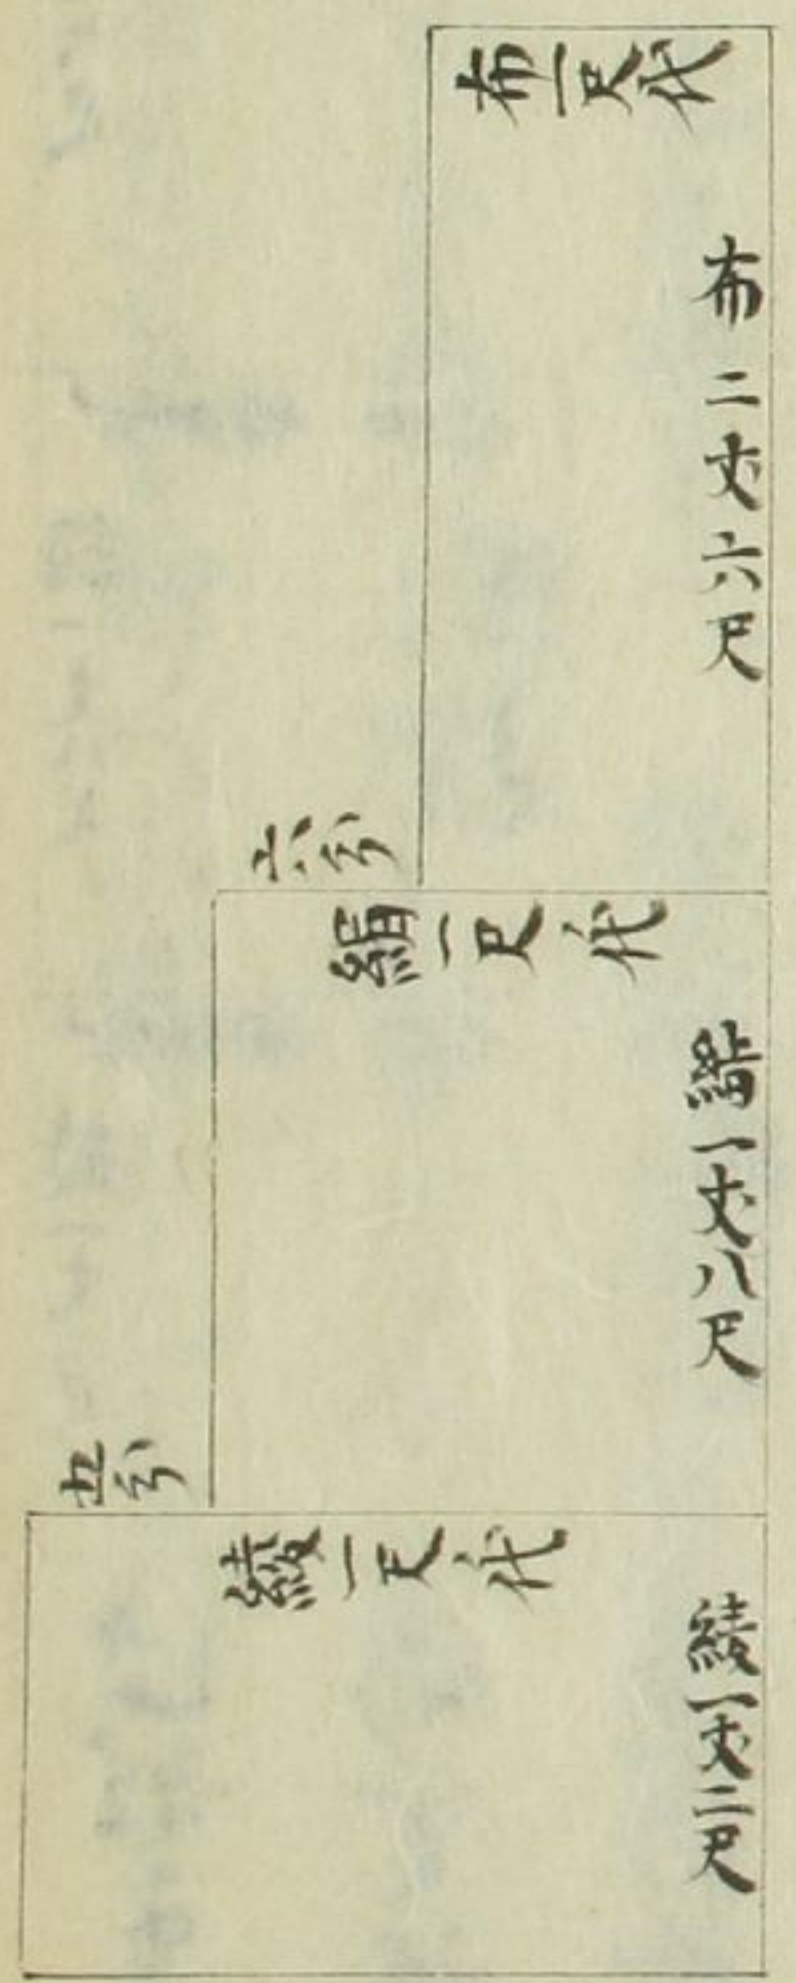 布一尺代
布二丈六尺
六分
絹一尺代
絹一丈八尺
五分
綾一尺代
綾一丈二尺